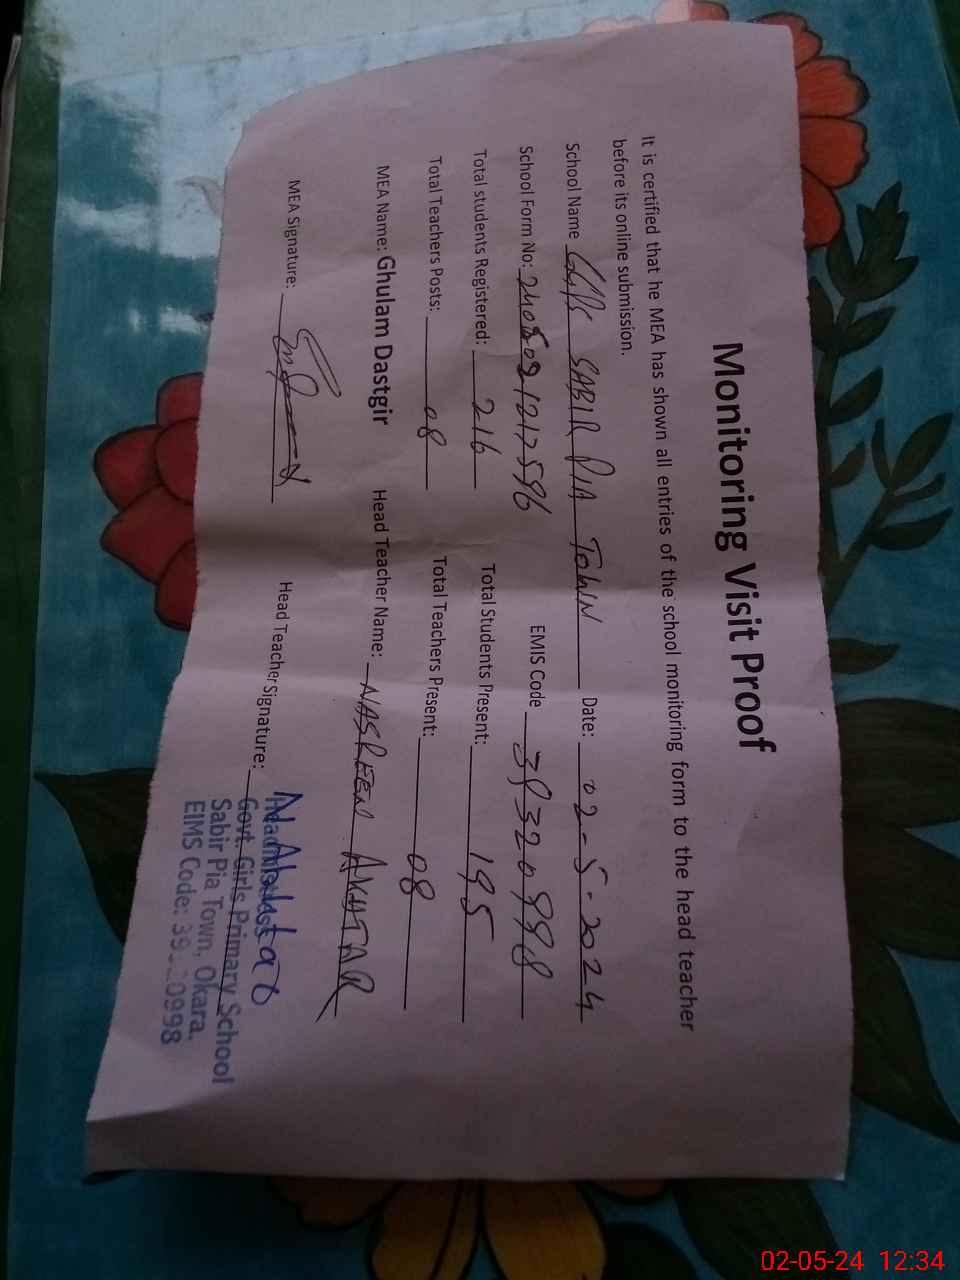 Monitoring Visit Proof
It is certified that he MEA has shown all entries of the school monitoring form to the head teacher
before its online submission.
School Name GGPS SABIR PIA TOWN Date: 02-5-2024
School Form No: 2405021217596 EMIS Code 39320998
Total students Registered: 216 Total Students Present: 195
Total Teachers Posts: 08 Total Teachers Present: 08
MEA Name: Ghulam Dastgir Head Teacher Name: NASREEN AKHTAR
MEA Signature: Head Teacher Signature: N Akhtar
Headmistress
Govt. Girls Primary School
Sabir Pia Town, Okara.
EIMS Code: 0998
02-05-24 12:34